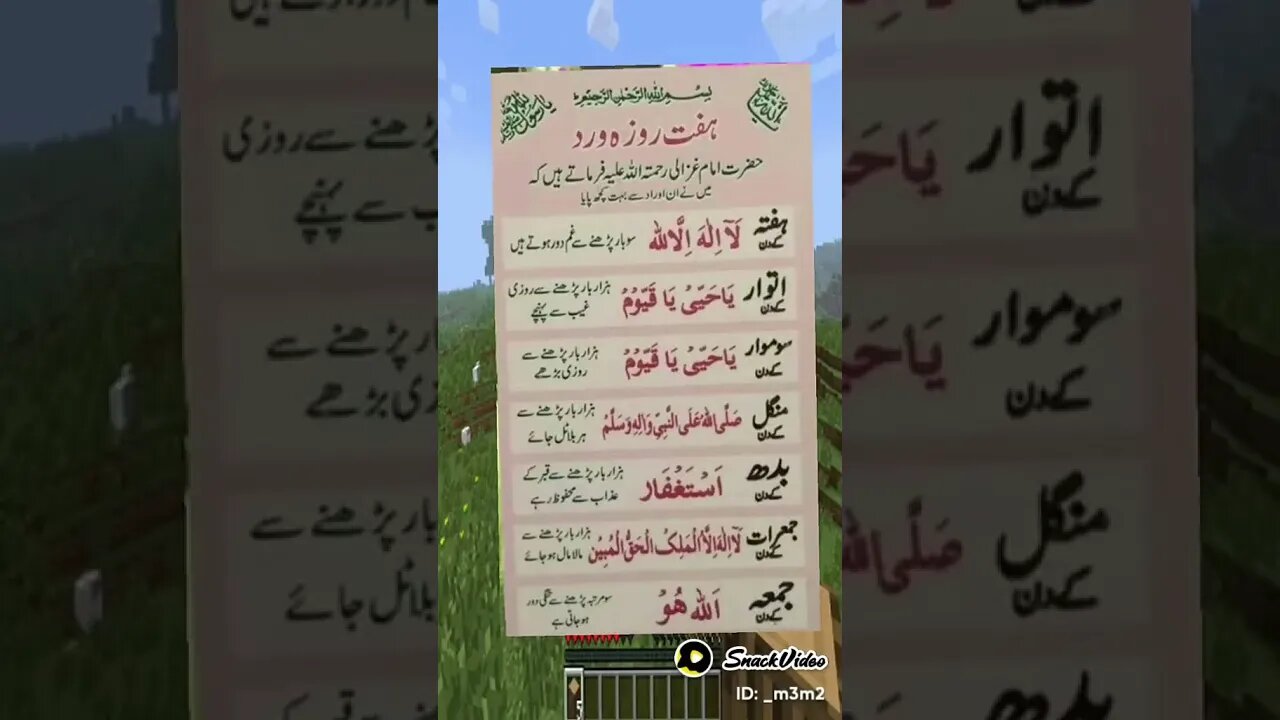 بسم اللہ الرحمٰن الرحیم
یا اللہ
یا رسول اللہ
ہفت روزہ ورد
حضرت امام غزالی رحمتہ اللہ علیہ فرماتے ہیں کہ
میں نے ان اوراد سے بہت کچھ پایا
ہفتہ کے دن
لَآ اِلٰهَ اِلَّا الله
سو بار پڑھنے سے غم دور ہوتے ہیں
اتوار کے دن
يَاحَيُّ يَا قَيُّوْمُ
ہزار بار پڑھنے سے روزی
غیب سے پہنچے
سوموار کے دن
يَاحَيُّ يَا قَيُّوْمُ
ہزار بار پڑھنے سے
روزی بڑھے
منگل کے دن
صَلَّى اللهُ عَلَى النَّبِيِّ وَاٰلِهٖ وَسَلَّمُ
ہزار بار پڑھنے سے
ہر بلا ٹل جائے
بدھ کے دن
اَسْتَغْفَار
ہزار بار پڑھنے سے قبر کے
عذاب سے محفوظ رہے
جمعرات کے دن
لَآ اِلٰهَ اِلَّا الْمَلِكُ الْحَقُّ الْمُبِيْن
ہزار بار پڑھنے سے
مالا مال ہو جائے
جمعہ کے دن
اَلله هُوْ
سو مرتبہ پڑھنے سے تنگی دور
ہو جاتی ہے
SnackVideo
ID: _m3m2